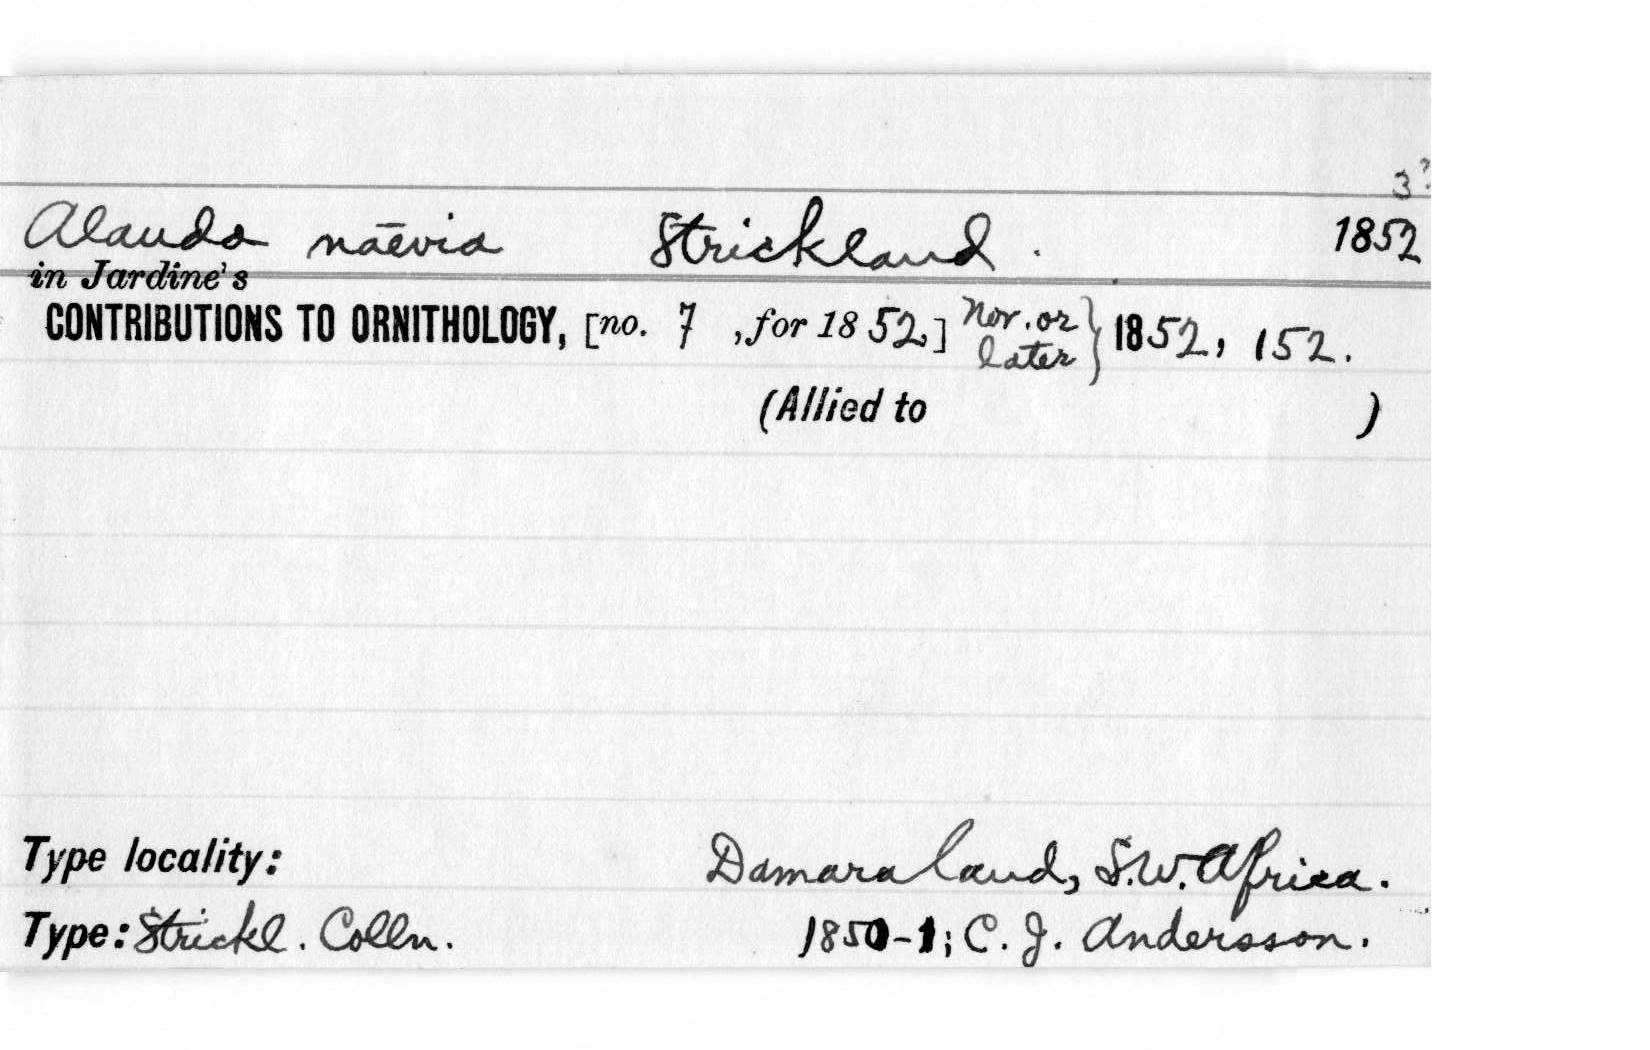 3?
Alauda naēvia Strickland. 1852
in Jardine's
CONTRIBUTIONS TO ORNITHOLOGY, [no. 7 , for 1852,] Nov. or later} 1852, 152.
(Allied to )
Type locality: Damaraland, S.W. Africa.
Type: Strickl. Colln. 1850-1; C. J. Andersson.